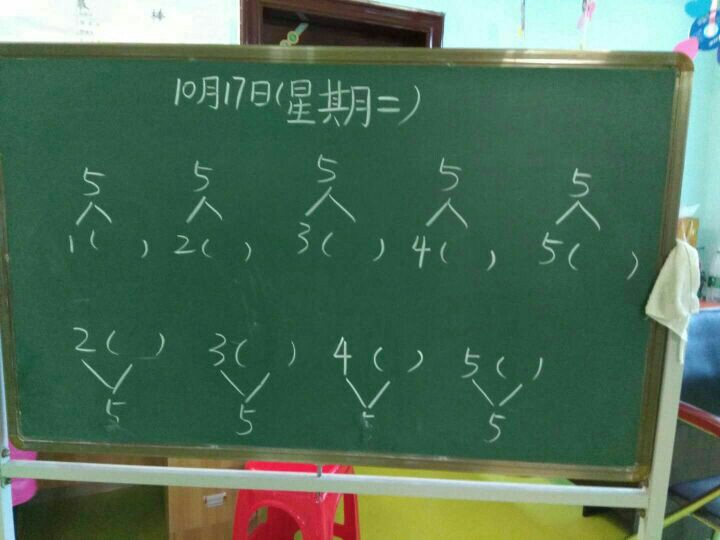 10月17日(星期二)
5 5 5 5 5
1( ) 2( ) 3( ) 4( ) 5( )
2( ) 3( ) 4( ) 5( )
5 5 5 5